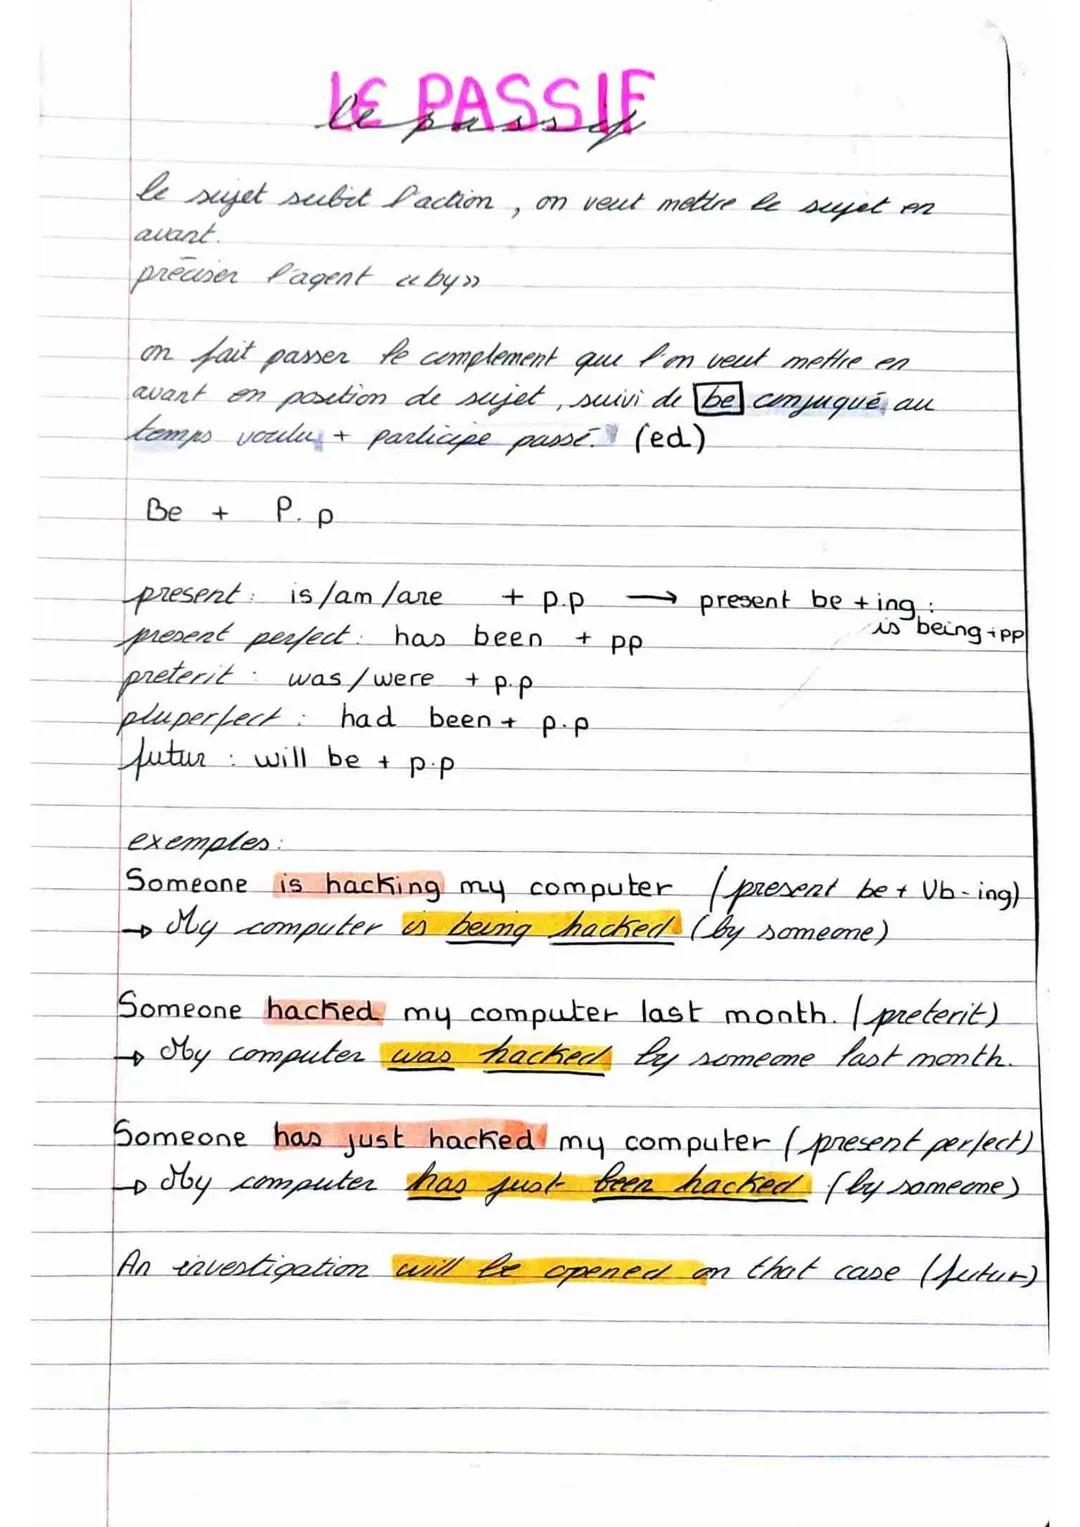 LE PASSIF
le passif
le sujet subit l'action, on veut mettre le sujet en
avant.
préciser l'agent «by»
on fait passer le complement que l'on veut mettre en
avant en position de sujet, suivi de be conjugué au
temps voulu + participe passé. (ed)
Be + P.p
present: is/am/are + p.p → present be +ing:
is being +pp
present perfect: has been + pp
preterit: was/were + p.p
pluperfect: had been + p.p
futur: will be + p.p
exemples:
Someone is hacking my computer (present be + Vb-ing)
→ My computer is being hacked (by someone)
Someone hacked my computer last month. (preterit)
→ My computer was hacked by someone last month.
Someone has just hacked my computer (present perfect)
→ My computer has just been hacked (by someone)
An investigation will be opened on that case (futur)